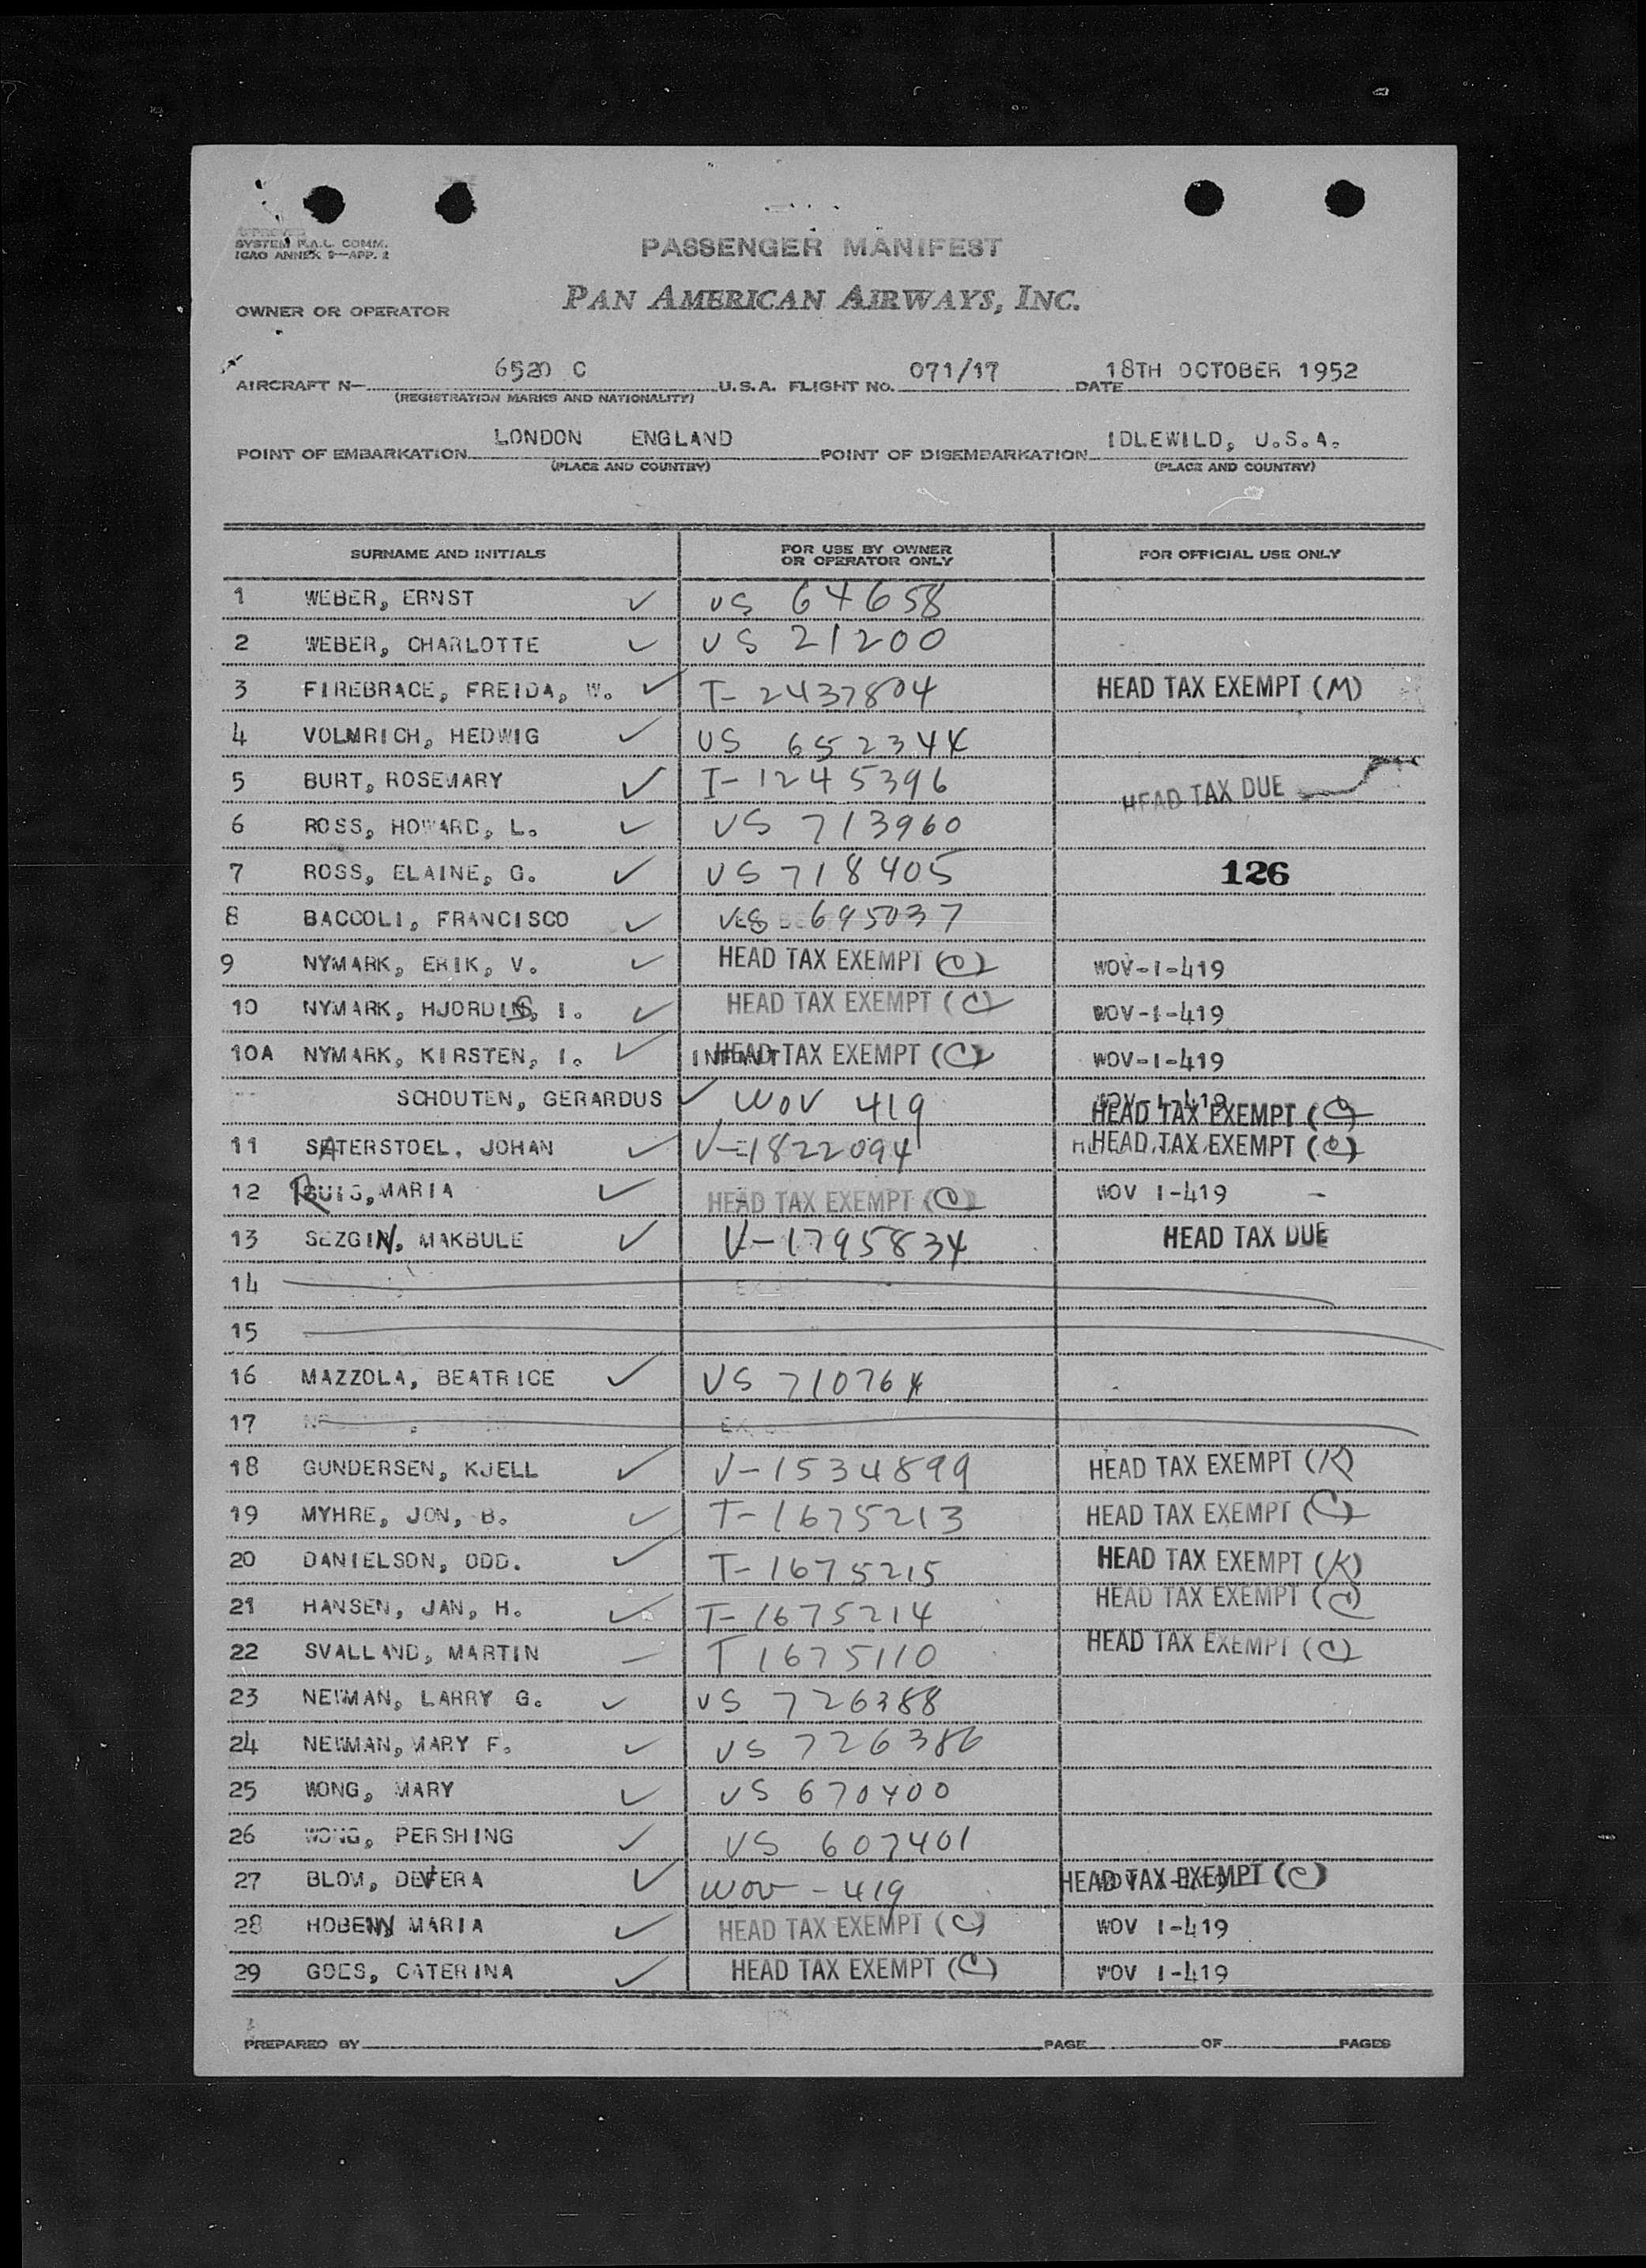 APPROVED
SYSTEM P.A.L. COMM.
ICAO ANNEX 9—APP. 2
PASSENGER MANIFEST
OWNER OR OPERATOR PAN AMERICAN AIRWAYS, INC.
AIRCRAFT N— 6520 C U.S.A. FLIGHT No. 071/17 DATE 18TH OCTOBER 1952
(REGISTRATION MARKS AND NATIONALITY)
POINT OF EMBARKATION LONDON ENGLAND POINT OF DISEMBARKATION IDLEWILD, U.S.A.
(PLACE AND COUNTRY) (PLACE AND COUNTRY)
SURNAME AND INITIALS FOR USE BY OWNER OR OPERATOR ONLY FOR OFFICIAL USE ONLY
1 WEBER, ERNST ✓ US 64658
2 WEBER, CHARLOTTE ✓ US 21200
3 FIREBRACE, FREIDA, W. ✓ T-2437804 HEAD TAX EXEMPT (M)
4 VOLMRICH, HEDWIG ✓ US 652344
5 BURT, ROSEMARY ✓ I-1245396 HEAD TAX DUE
6 ROSS, HOWARD, L. ✓ US 713960
7 ROSS, ELAINE, G. ✓ US 718405 126
8 BACCOLI, FRANCISCO ✓ US 695037
9 NYMARK, ERIK, V. ✓ HEAD TAX EXEMPT (C) WOV-1-419
10 NYMARK, HJORDIS, I. ✓ HEAD TAX EXEMPT (C) WOV-1-419
10A NYMARK, KIRSTEN, I. ✓ INFANT HEAD TAX EXEMPT (C) WOV-1-419
SCHOUTEN, GERARDUS ✓ WOV 419 WOV-1-419 HEAD TAX EXEMPT (C)
11 SATERSTOEL, JOHAN ✓ V-1822094 HEAD TAX EXEMPT (C)
12 RUIS, MARIA ✓ HEAD TAX EXEMPT (C) WOV 1-419 -
13 SEZGIN, MAKBULE ✓ V-1795834 HEAD TAX DUE
14
15
16 MAZZOLA, BEATRICE ✓ US 710764
17
18 GUNDERSEN, KJELL ✓ V-1534899 HEAD TAX EXEMPT (K)
19 MYHRE, JON, B. ✓ T-1675213 HEAD TAX EXEMPT (C)
20 DANIELSON, ODD. ✓ T-1675215 HEAD TAX EXEMPT (K)
21 HANSEN, JAN, H. ✓ T-1675214 HEAD TAX EXEMPT (C)
22 SVALLAND, MARTIN — T 1675110 HEAD TAX EXEMPT (C)
23 NEWMAN, LARRY G. ✓ US 726388
24 NEWMAN, MARY F. ✓ US 726386
25 WONG, MARY ✓ US 670400
26 WONG, PERSHING ✓ US 607401
27 BLOM, DEVERA ✓ WOV - 419 HEAD TAX EXEMPT (C)
28 HOBENN MARIA ✓ HEAD TAX EXEMPT (C) WOV 1-419
29 GOES, CATERINA ✓ HEAD TAX EXEMPT (C) WOV 1-419
PREPARED BY PAGE OF PAGES